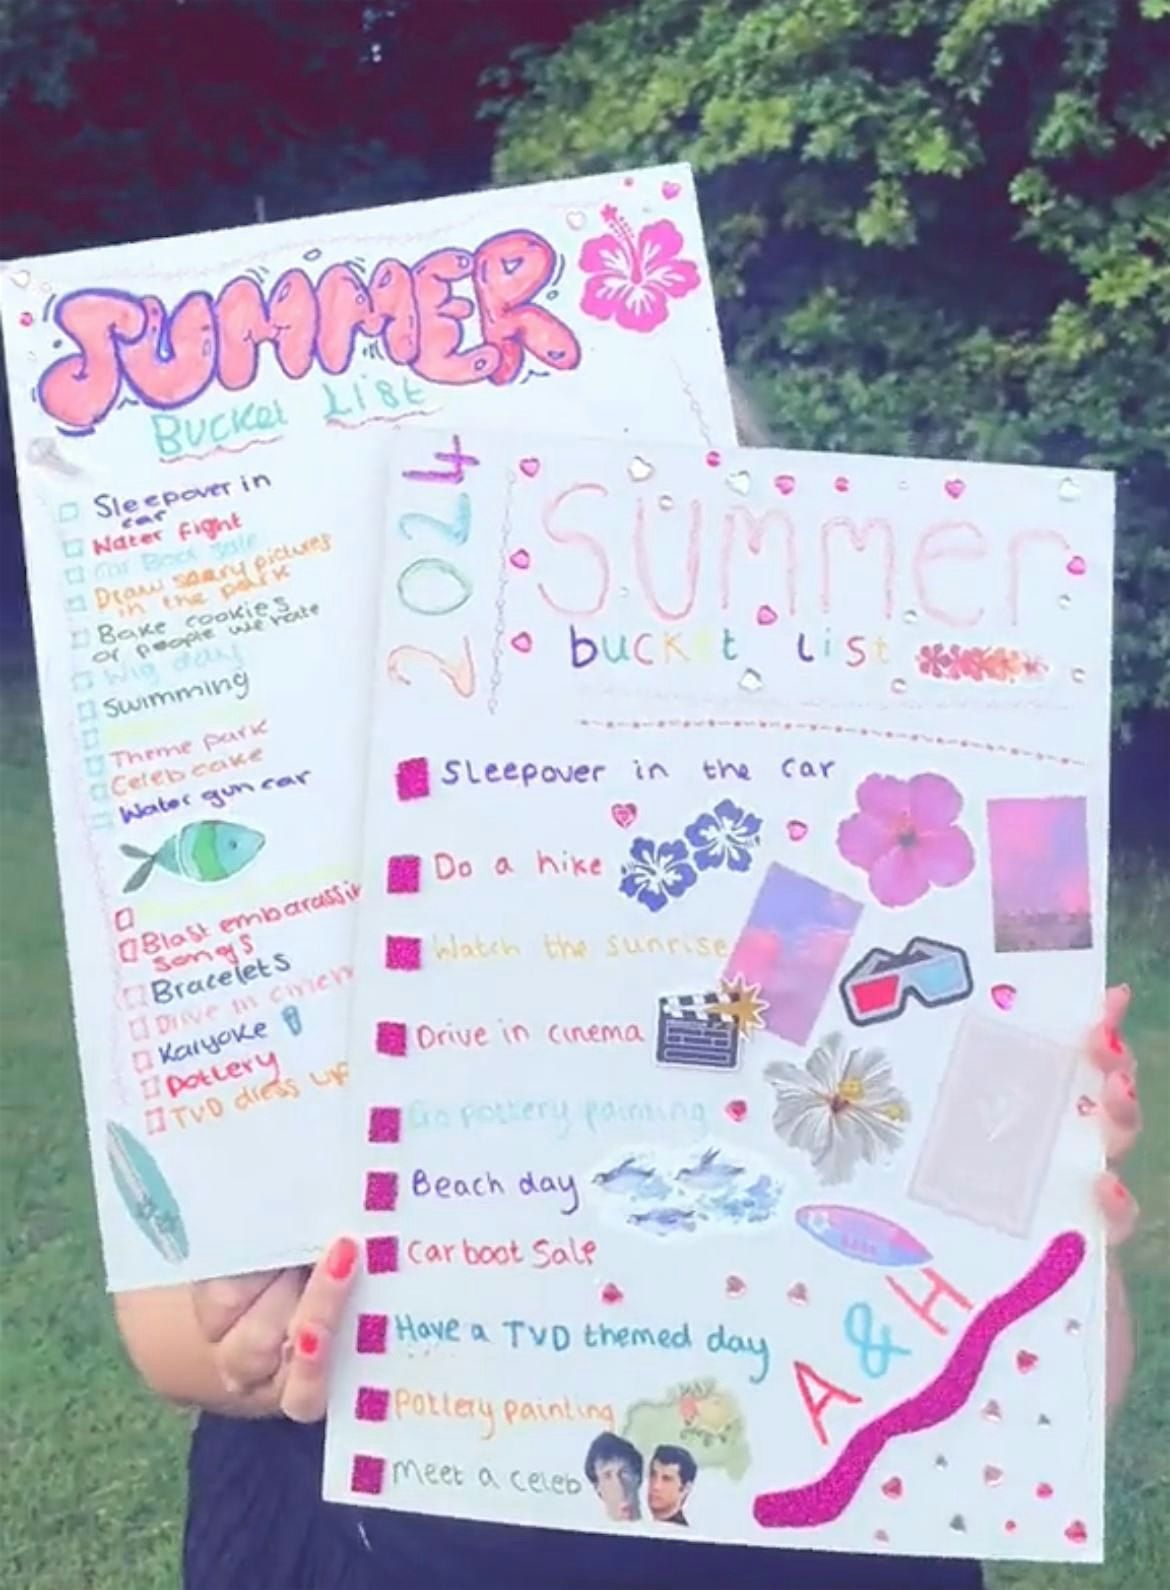 SUMMER
Bucket List
Sleepover in
car
Water fight
Car Boot Sale
Draw scary pictures
in the park
Bake cookies
of people we hate
Wig day
Swimming
Theme park
Celeb cake
Water gun car
Blast embarassin
songs
Bracelets
Drive in cinem
Karyoke
Pottery
TVD dress up
2024
Summer
bucket list
Sleepover in the car
Do a hike
Watch the sunrise
Drive in cinema
Go pottery painting
Beach day
Car boot Sale
Have a TVD themed day
Pottery painting
Meet a celeb
A & H